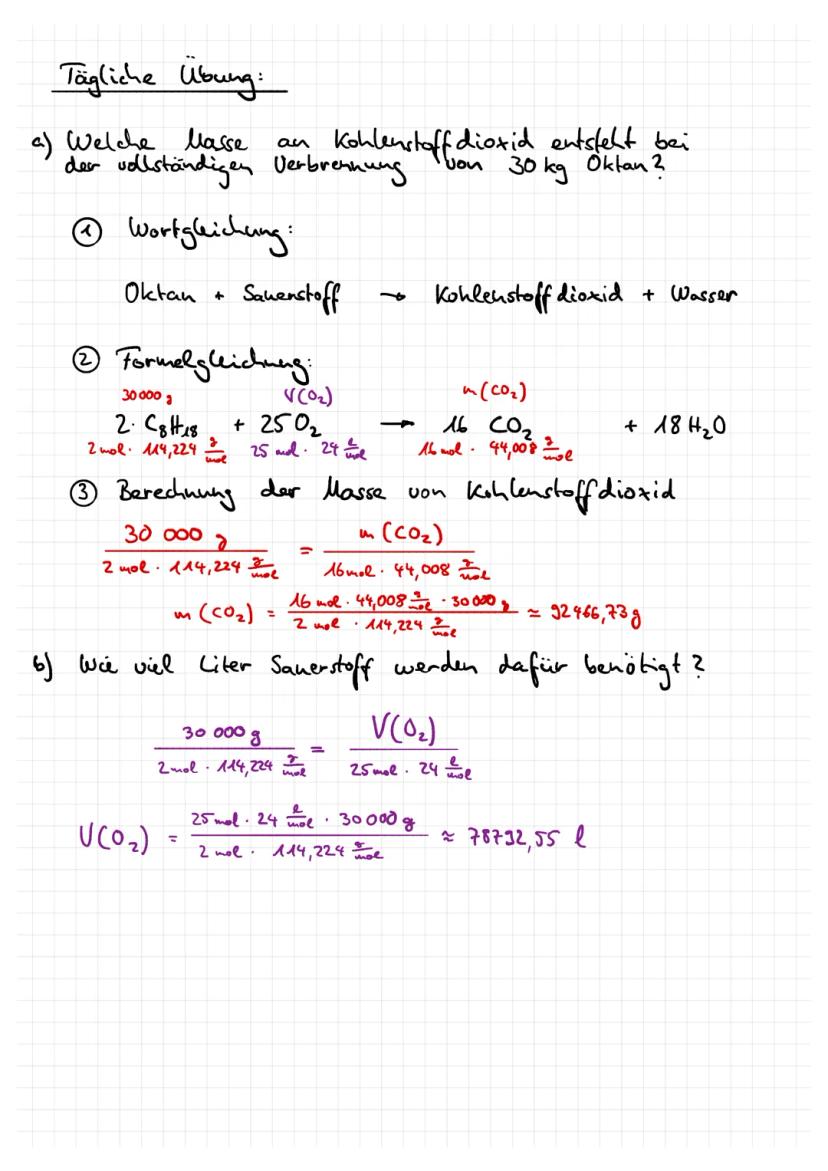 Tägliche Übung:
a) Welche Masse an Kohlenstoffdioxid entsteht bei
der vollständigen Verbrennung von 30 kg Oktan?
① Wortgleichung:
Oktan + Sauerstoff → Kohlenstoffdioxid + Wasser
② Formelgleichung:
30000 g V(O₂) m(CO₂)
2 · C₈H₁₈ + 25 O₂ → 16 CO₂ + 18 H₂O
2 mol · 114,224 g/mol 25 mol · 24 l/mol 16 mol · 44,008 g/mol
③ Berechnung der Masse von Kohlenstoffdioxid
30 000 g / 2 mol · 114,224 g/mol = m(CO₂) / 16 mol · 44,008 g/mol
m(CO₂) = 16 mol · 44,008 g/mol · 30000 g / 2 mol · 114,224 g/mol ≈ 92466,73 g
b) Wie viel Liter Sauerstoff werden dafür benötigt?
30 000 g / 2 mol · 114,224 g/mol = V(O₂) / 25 mol · 24 l/mol
V(O₂) = 25 mol · 24 l/mol · 30000 g / 2 mol · 114,224 g/mol ≈ 78792,55 l